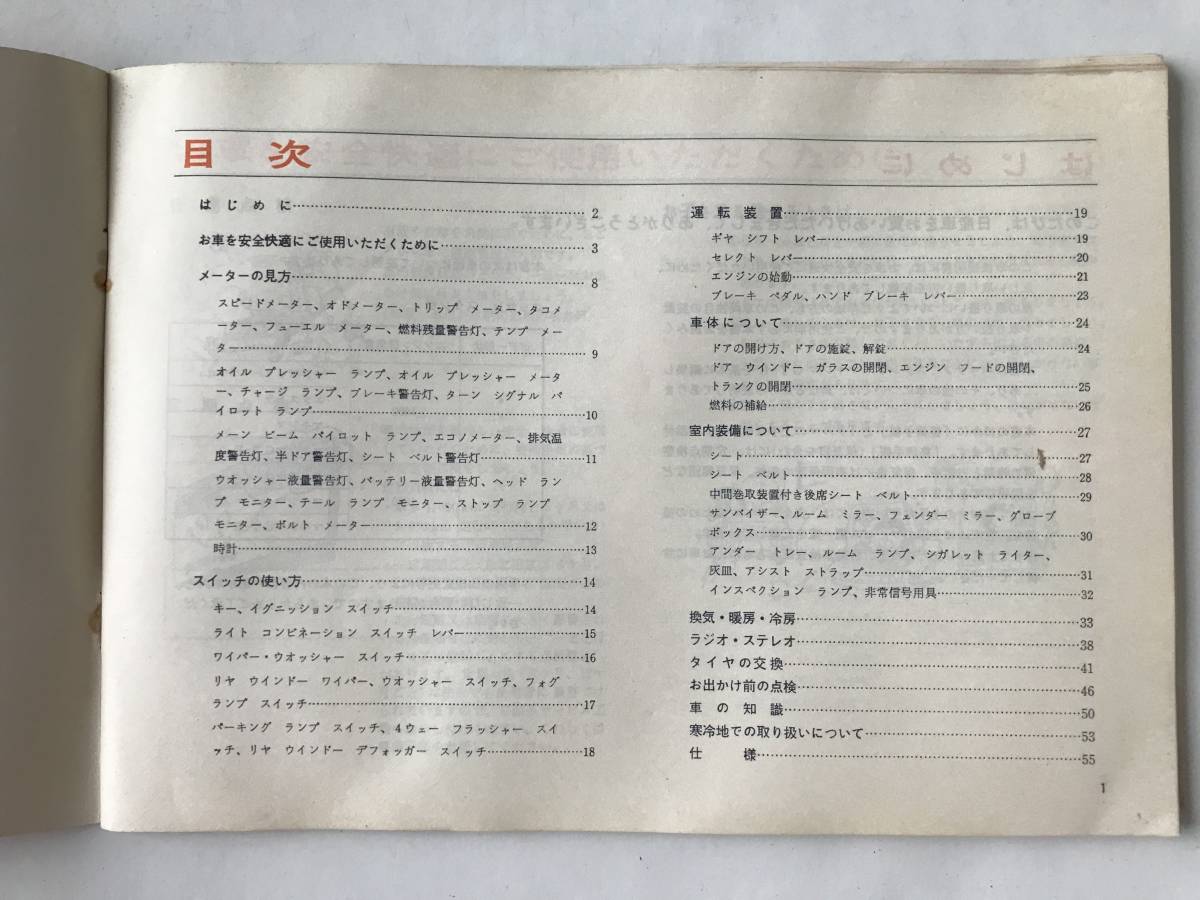 目次
はじめに……2
お車を安全快適にご使用いただくために……3
メーターの見方……8
スピードメーター、オドメーター、トリップ メーター、タコメ
ーター、フューエル メーター、燃料残量警告灯、テンプ メー
ター……9
オイル プレッシャー ランプ、オイル プレッシャー メータ
ー、チャージ ランプ、ブレーキ警告灯、ターン シグナル パ
イロット ランプ……10
メーン ビーム パイロット ランプ、エコノメーター、排気温
度警告灯、半ドア警告灯、シート ベルト警告灯……11
ウオッシャー液量警告灯、バッテリー液量警告灯、ヘッド ラン
プ モニター、テール ランプ モニター、ストップ ランプ
モニター、ボルト メーター……12
時計……13
スイッチの使い方……14
キー、イグニッション スイッチ……14
ライト コンビネーション スイッチ レバー……15
ワイパー・ウオッシャー スイッチ……16
リヤ ウインドー ワイパー、ウオッシャー スイッチ、フォグ
ランプ スイッチ……17
パーキング ランプ スイッチ、4ウェー フラッシャー スイ
ッチ、リヤ ウインドー デフォッガー スイッチ……18
運転装置……19
ギヤ シフト レバー……19
セレクト レバー……20
エンジンの始動……21
ブレーキ ペダル、ハンド ブレーキ レバー……23
車体について……24
ドアの開け方、ドアの施錠、解錠……24
ドア ウインドー ガラスの開閉、エンジン フードの開閉、
トランクの開閉……25
燃料の補給……26
室内装備について……27
シート……27
シート ベルト……28
中間巻取装置付き後席シート ベルト……29
サンバイザー、ルーム ミラー、フェンダー ミラー、グローブ
ボックス……30
アンダー トレー、ルーム ランプ、シガレット ライター、
灰皿、アシスト ストラップ……31
インスペクション ランプ、非常信号用具……32
換気・暖房・冷房……33
ラジオ・ステレオ……38
タイヤの交換……41
お出かけ前の点検……46
車の知識……50
寒冷地での取り扱いについて……53
仕様……55
1